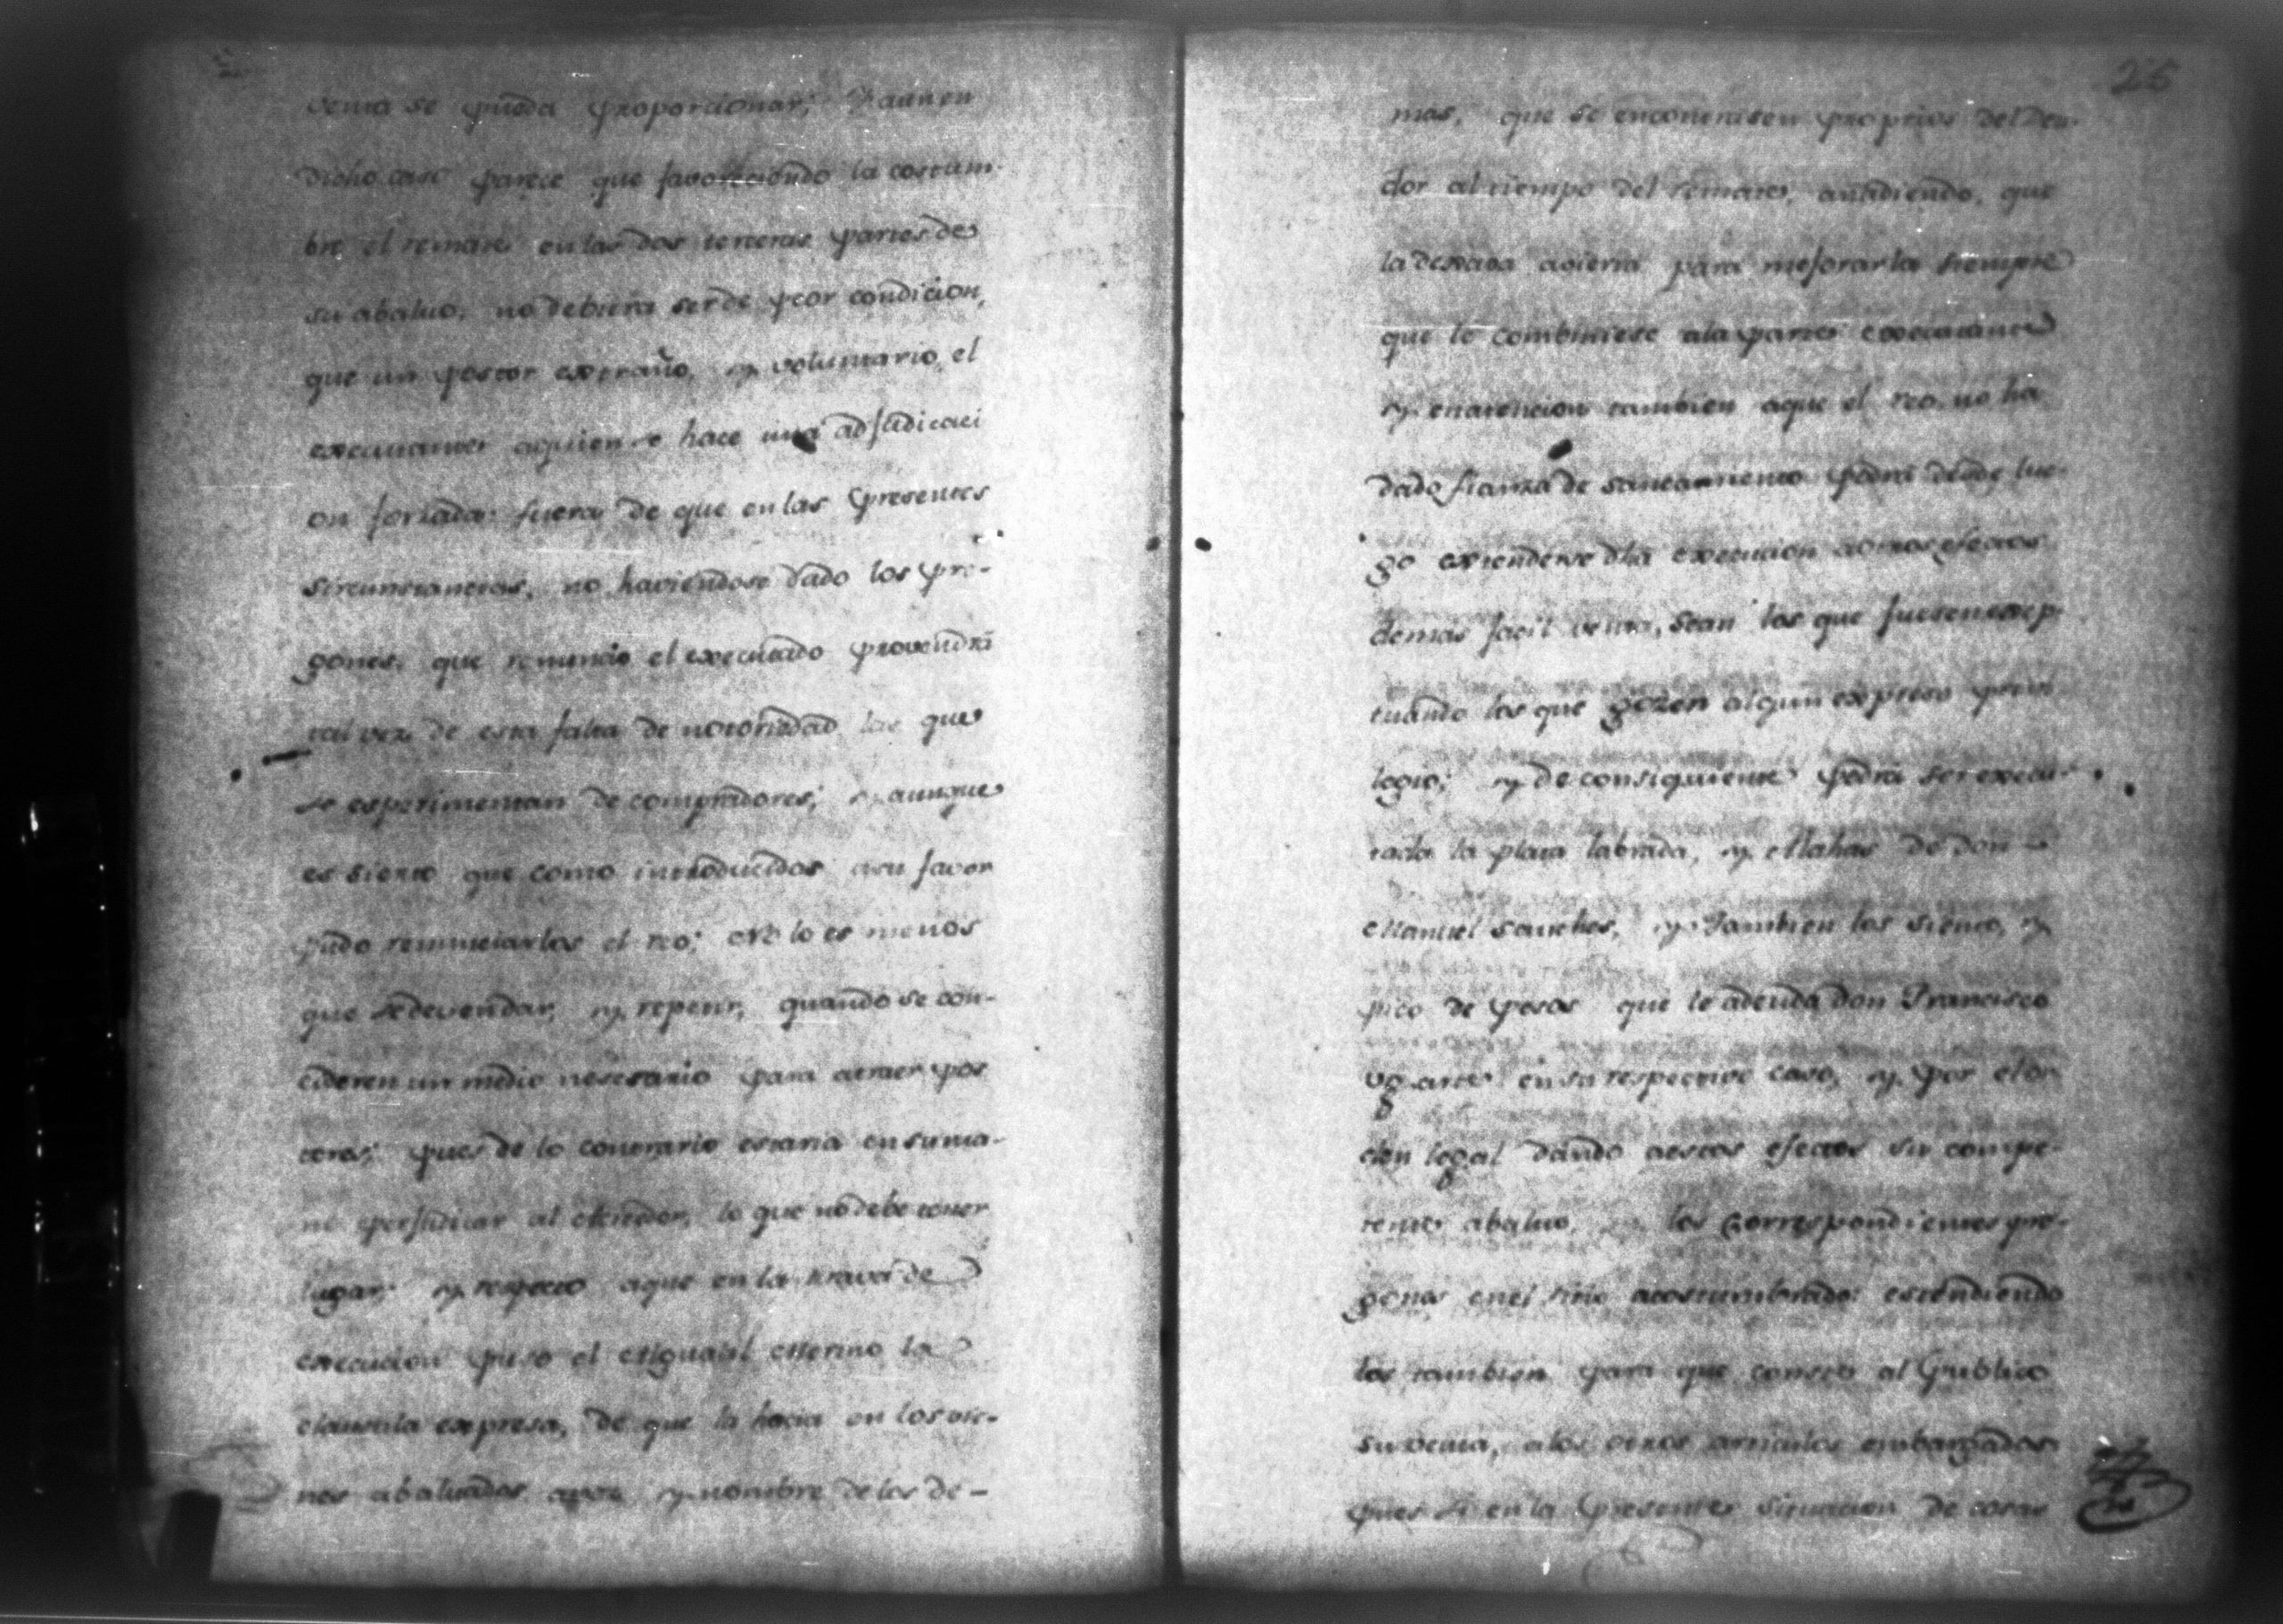 venta se pueda proporcionar; Y aun en
dicho caso parece que favoreciendo la costum-
bre el remate en las dos terceras partes de
su abaluo, no debiera ser de peor condicion,
que un postor extraño, y voluntario, el
executante aquien se hace una adjudicaci
on forzada: fuera de que en las presentes
sircunstancias, no haviendose dado los pre-
gones, que renuncio el executado provendrá
tal vez de esta falta de notoriedad la que
se esperimentan de compradores; y aunque
es sierto que como introducidos asu favor
pudo renunciarlos el reo; No lo es menos
que se deven dar, y repetir, quando se con-
cideren un medio nesesario para atraer pos
tores; pues de lo contrario estaria en su ma-
no perjudicar al acreedor, lo que no debe tener
lugar; y respecto aque en la trava de
execucion puso el Alguacil Merino la
clausula expresa, de que la hacia en los vie-
nes abaluados avoz y nombre de los de-
25
mas, que se encontrasen proprios del Deu-
dor al tiempo del remate, añadiendo, que
la dexava avierta para mejorarla siempre
que le combiniese ala parte executante
y enatencion tambien aque el reo no ha
dado fianza de saneamiento podrá desde lue-
go extenderse dha execucion aotros efectos
demas facil venta, sean los que fuesen excep-
tuando los que gozen algun expreso privi
legio; y de consiguiente podrá ser execu-
tada la plata labrada, y Alahas de don
Manuel Sanches, y Tambien los siento, y
pico de pesos que le adeuda don Francisco
Ugarte en su respectivo caso, y por el or
den legal dando aestos efectos su compe-
tente abaluo, y los correspondientes pre-
gones en el sitio acostumbrado: estendiendo
los tambien para que conste al Publico
su venta, alos otros articulos embargados
pues si en la presente situacion de cosas